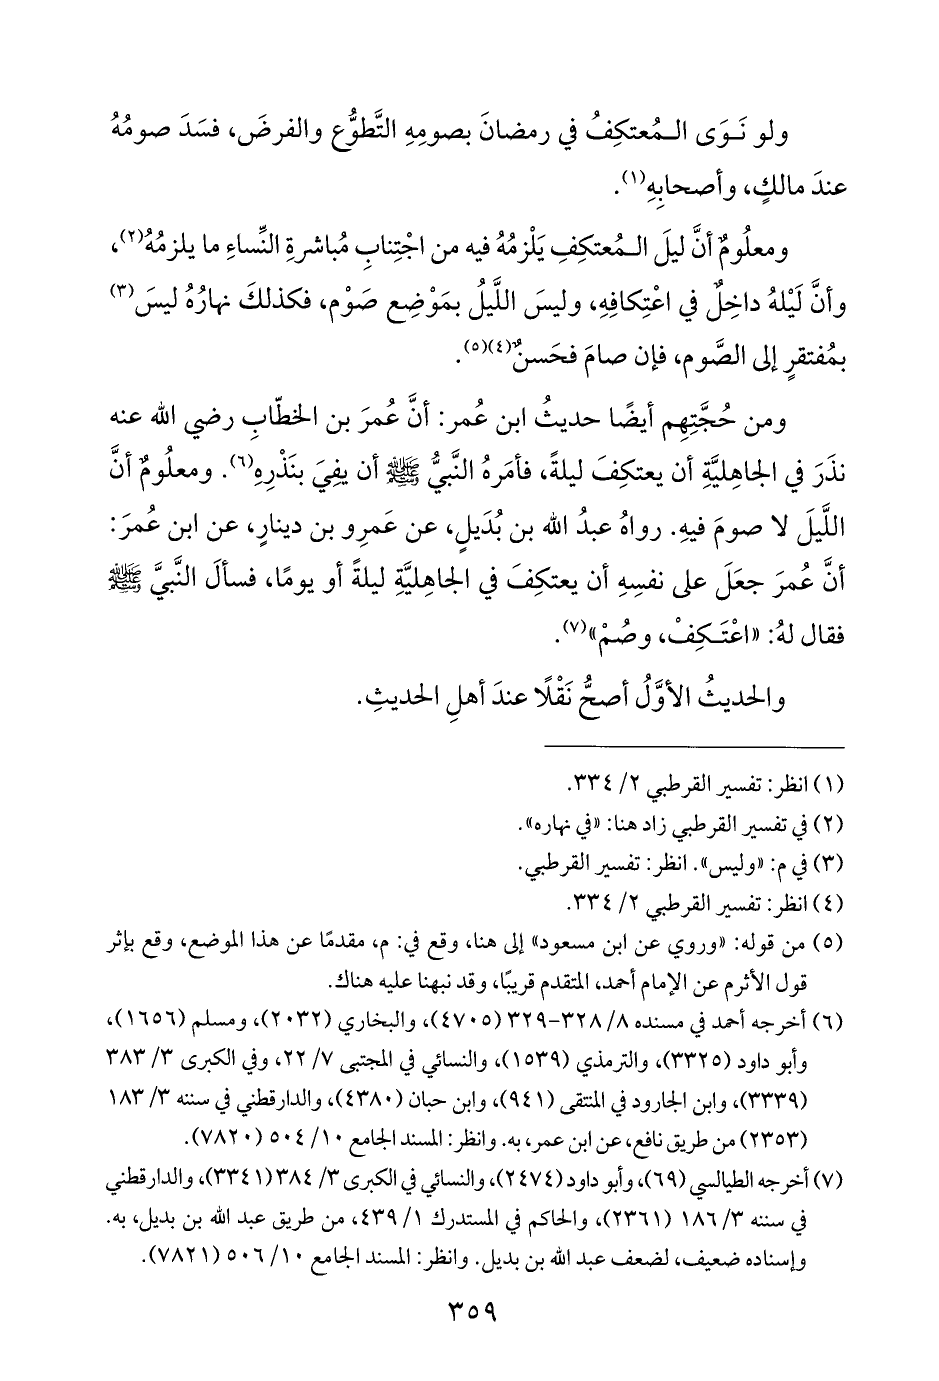 ولو نَــوَى الـمُعتكِفُ في رمضانَ بصومِهِ التَّطوُّع والفرضَ، فسَدَ صومُهُ
عندَ مالكٍ، وأصحابِهِ(١).
ومعلُومٌ أنَّ ليلَ الـمُعتكِفِ يَلْزمُهُ فيه من اجْتِنابِ مُباشرةِ النِّساءِ ما يلزمُهُ(٢)،
وأنَّ لَيْلهُ داخِلٌ في اعْتِكافِهِ، وليسَ اللَّيلُ بمَوْضِع صَوْم، فكذلكَ نهارُهُ ليسَ(٣)
بمُفتقرٍ إلى الصَّوم، فإن صامَ فحَسنٌ(٤)(٥).
ومن حُجَّتِهِم أيضًا حديثُ ابن عُمر: أنَّ عُمرَ بن الخطّابِ رضي الله عنه
نذَرَ في الجاهِليَّةِ أن يعتكِفَ ليلةً، فأمَرهُ النَّبيُّ ﷺ أن يفِيَ بنَذْرِهِ(٦). ومعلُومٌ أنَّ
اللَّيلَ لا صومَ فيهِ. رواهُ عبدُ الله بن بُدَيلٍ، عن عَمرِو بن دينارٍ، عن ابن عُمرَ:
أنَّ عُمرَ جعَلَ على نفسِهِ أن يعتكِفَ في الجاهِليَّةِ ليلةً أو يومًا، فسألَ النَّبيَّ ﷺ
فقال لهُ: «اعْتَـكِفْ، وصُمْ»(٧).
والحديثُ الأوَّلُ أصحُّ نَقْلًا عندَ أهلِ الحديثِ.
(١) انظر: تفسير القرطبي ٢/ ٣٣٤.
(٢) في تفسير القرطبي زاد هنا: «في نهاره».
(٣) في م: «وليس». انظر: تفسير القرطبي.
(٤) انظر: تفسير القرطبي ٢/ ٣٣٤.
(٥) من قوله: «وروي عن ابن مسعود» إلى هنا، وقع في: م، مقدمًا عن هذا الموضع، وقع بإثر
قول الأثرم عن الإمام أحمد، المتقدم قريبًا، وقد نبهنا عليه هناك.
(٦) أخرجه أحمد في مسنده ٨/ ٣٢٨-٣٢٩ (٤٧٠٥)، والبخاري (٢٠٣٢)، ومسلم (١٦٥٦)،
وأبو داود (٣٣٢٥)، والترمذي (١٥٣٩)، والنسائي في المجتبى ٧/ ٢٢، وفي الكبرى ٣/ ٣٨٣
(٣٣٣٩)، وابن الجارود في المنتقى (٩٤١)، وابن حبان (٤٣٨٠)، والدارقطني في سننه ٣/ ١٨٣
(٢٣٥٣) من طريق نافع، عن ابن عمر، به. وانظر: المسند الجامع ١٠/ ٥٠٤ (٧٨٢٠).
(٧) أخرجه الطيالسي (٦٩)، وأبو داود (٢٤٧٤)، والنسائي في الكبرى ٣/ ٣٨٤ (٣٣٤١)، والدارقطني
في سننه ٣/ ١٨٦ (٢٣٦١)، والحاكم في المستدرك ١/ ٤٣٩، من طريق عبد الله بن بديل، به.
وإسناده ضعيف، لضعف عبد الله بن بديل. وانظر: المسند الجامع ١٠/ ٥٠٦ (٧٨٢١).
٣٥٩